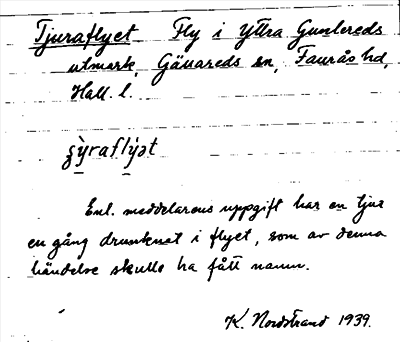 Tjuraflyet Fly i Yttra Gunnereds
utmark, Gällareds sn, Faurås hd,
Hall. l.
ʒỳraflýət
Enl. meddelarens uppgift har en tjur
en gång drunknat i flyet, som av denna
händelse skulle ha fått namn.
K. Nordstrand 1939.